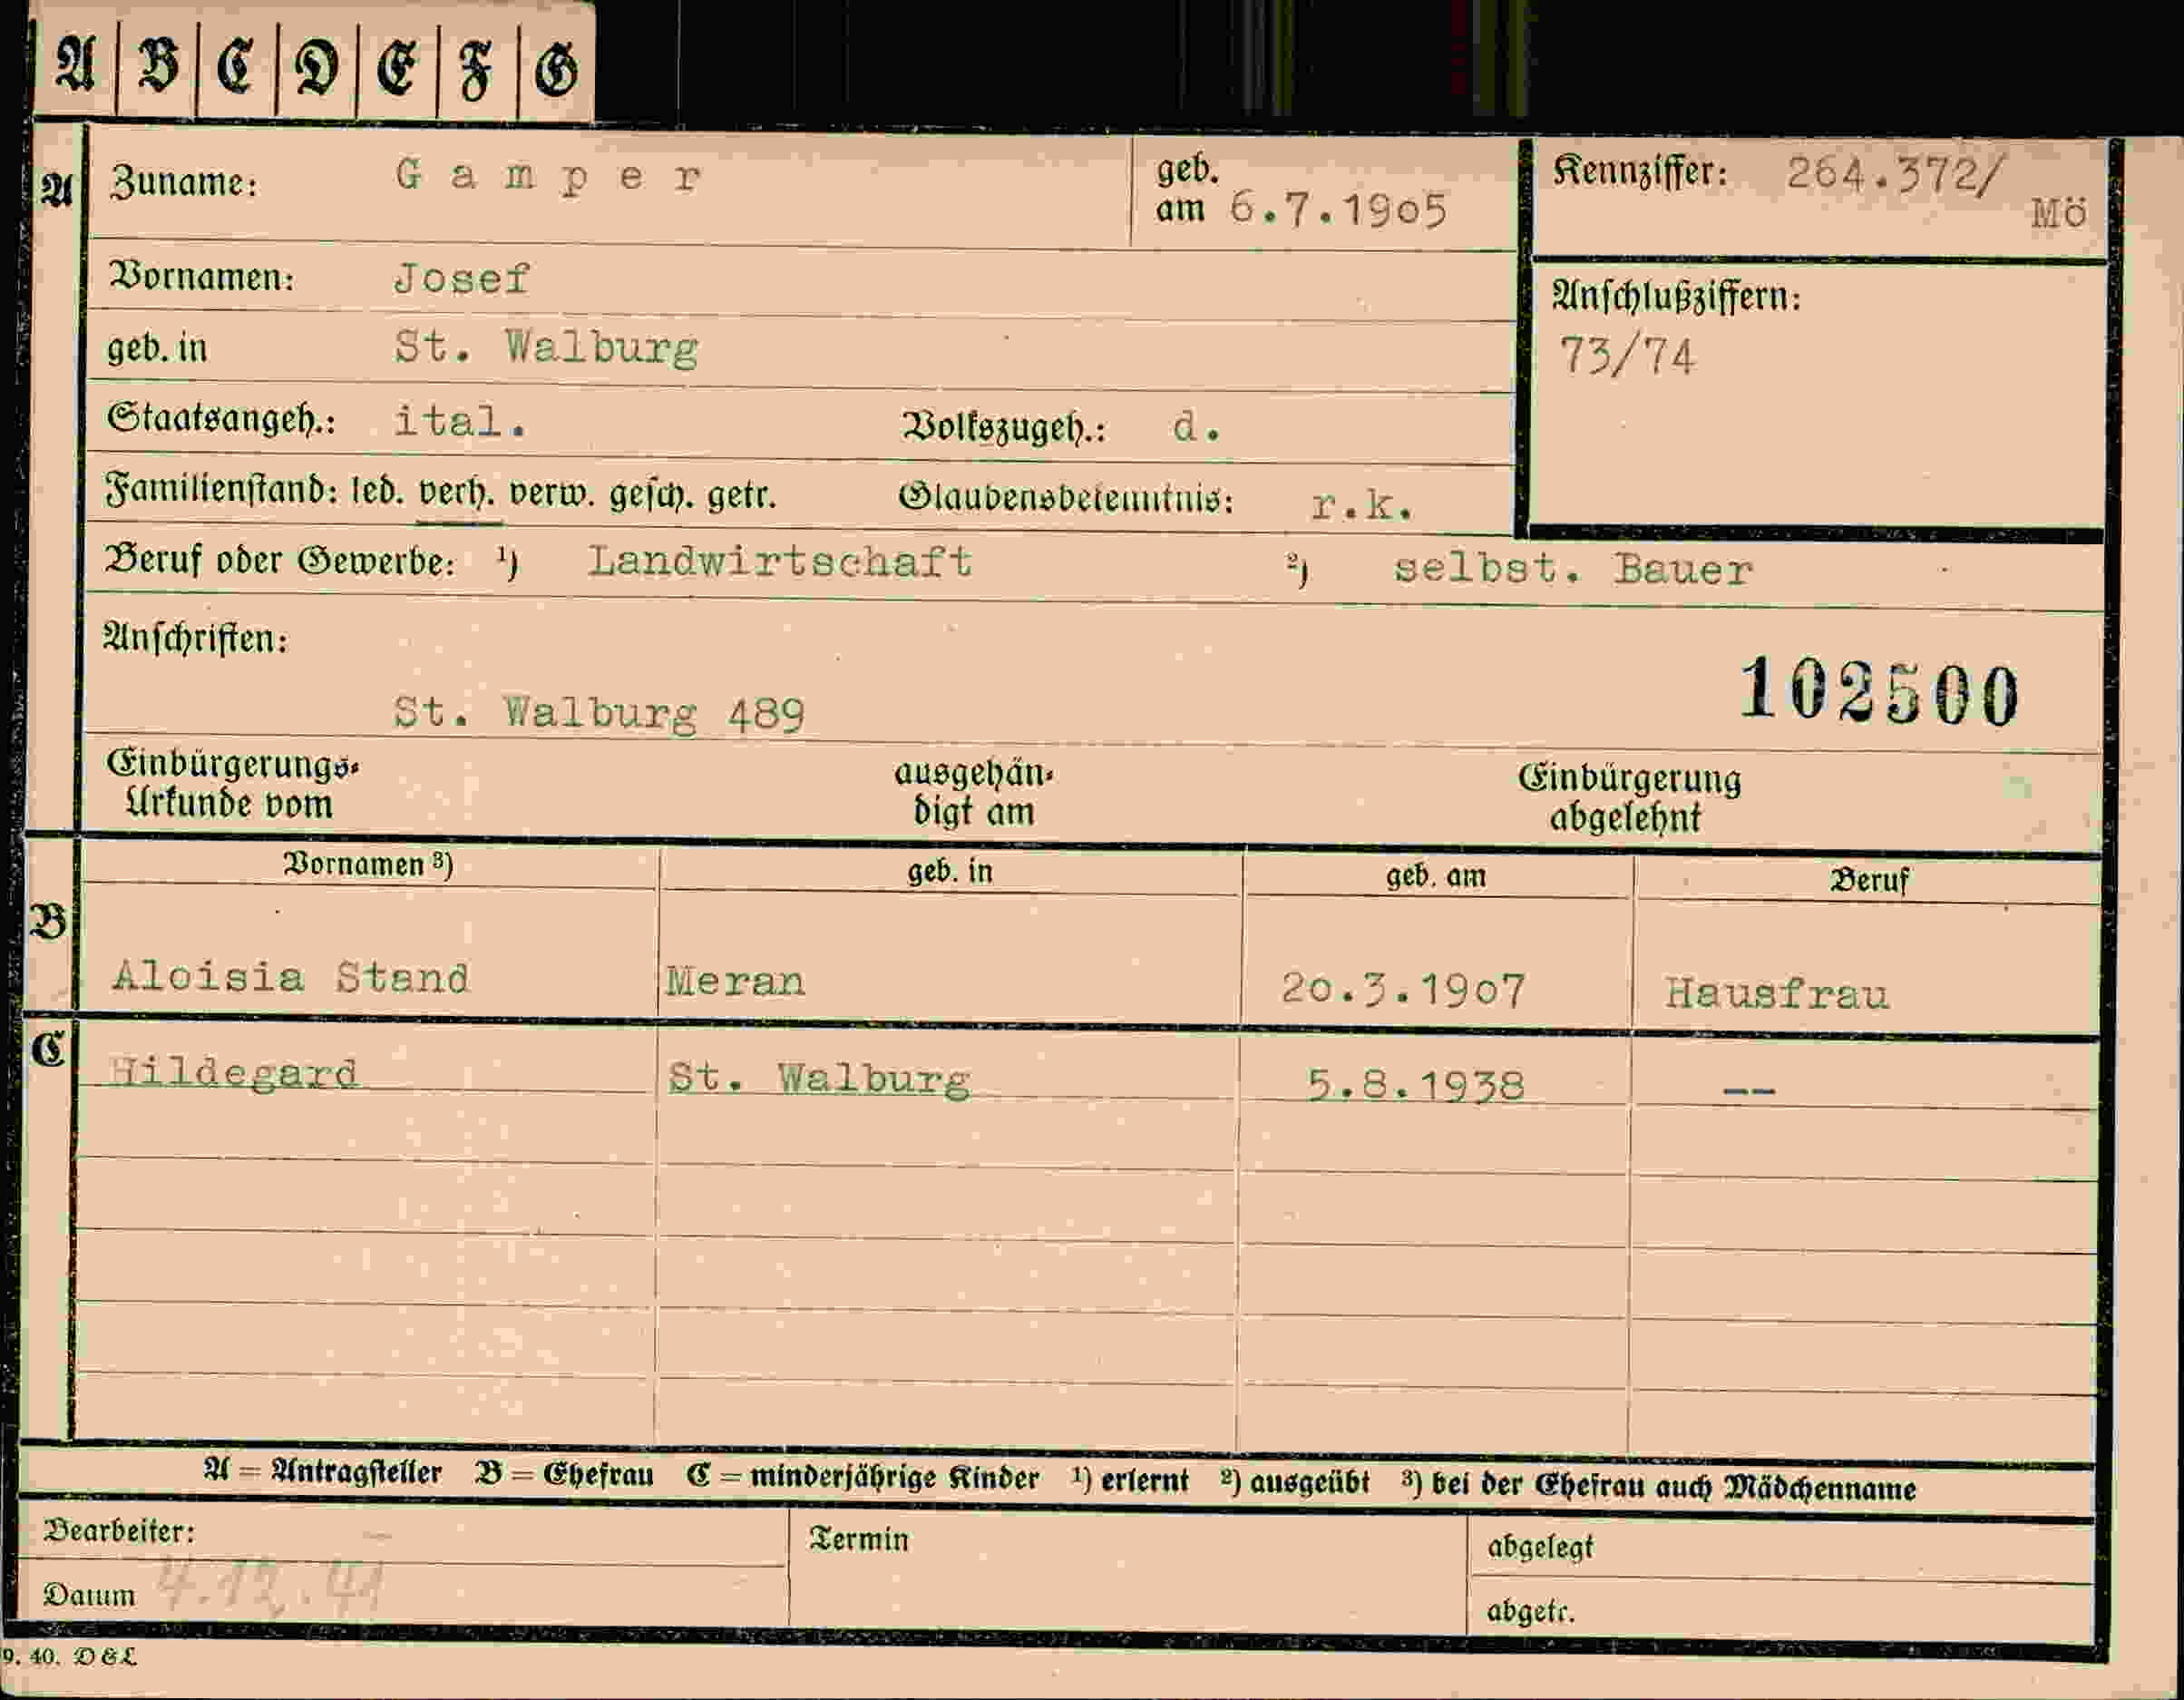 A B C D E F G
A Zuname: Gamper geb. am 6.7.1905 Kennziffer: 264.372/Mö
Vornamen: Josef
Anschlußziffern:
73/74
geb. in St. Walburg
Staatsangeh.: ital. Volkszugeh.: d.
Familienstand: led. verh. verw. gesch. getr. Glaubensbekenntnis: r.k.
Beruf oder Gewerbe: ¹) Landwirtschaft ²) selbst. Bauer
Anschriften:
102500
St. Walburg 489
Einbürgerungs-
Urkunde vom
ausgehän-
digt am
Einbürgerung
abgelehnt
Vornamen ³) geb. in geb. am Beruf
B
Aloisia Stand Meran 20.3.1907 Hausfrau
C
Hildegard St. Walburg 5.8.1938 --
A = Antragsteller B = Ehefrau C = minderjährige Kinder ¹) erlernt ²) ausgeübt ³) bei der Ehefrau auch Mädchenname
Bearbeiter: Termin abgelegt
Datum 4.12.41 abgetr.
9. 40. D & L